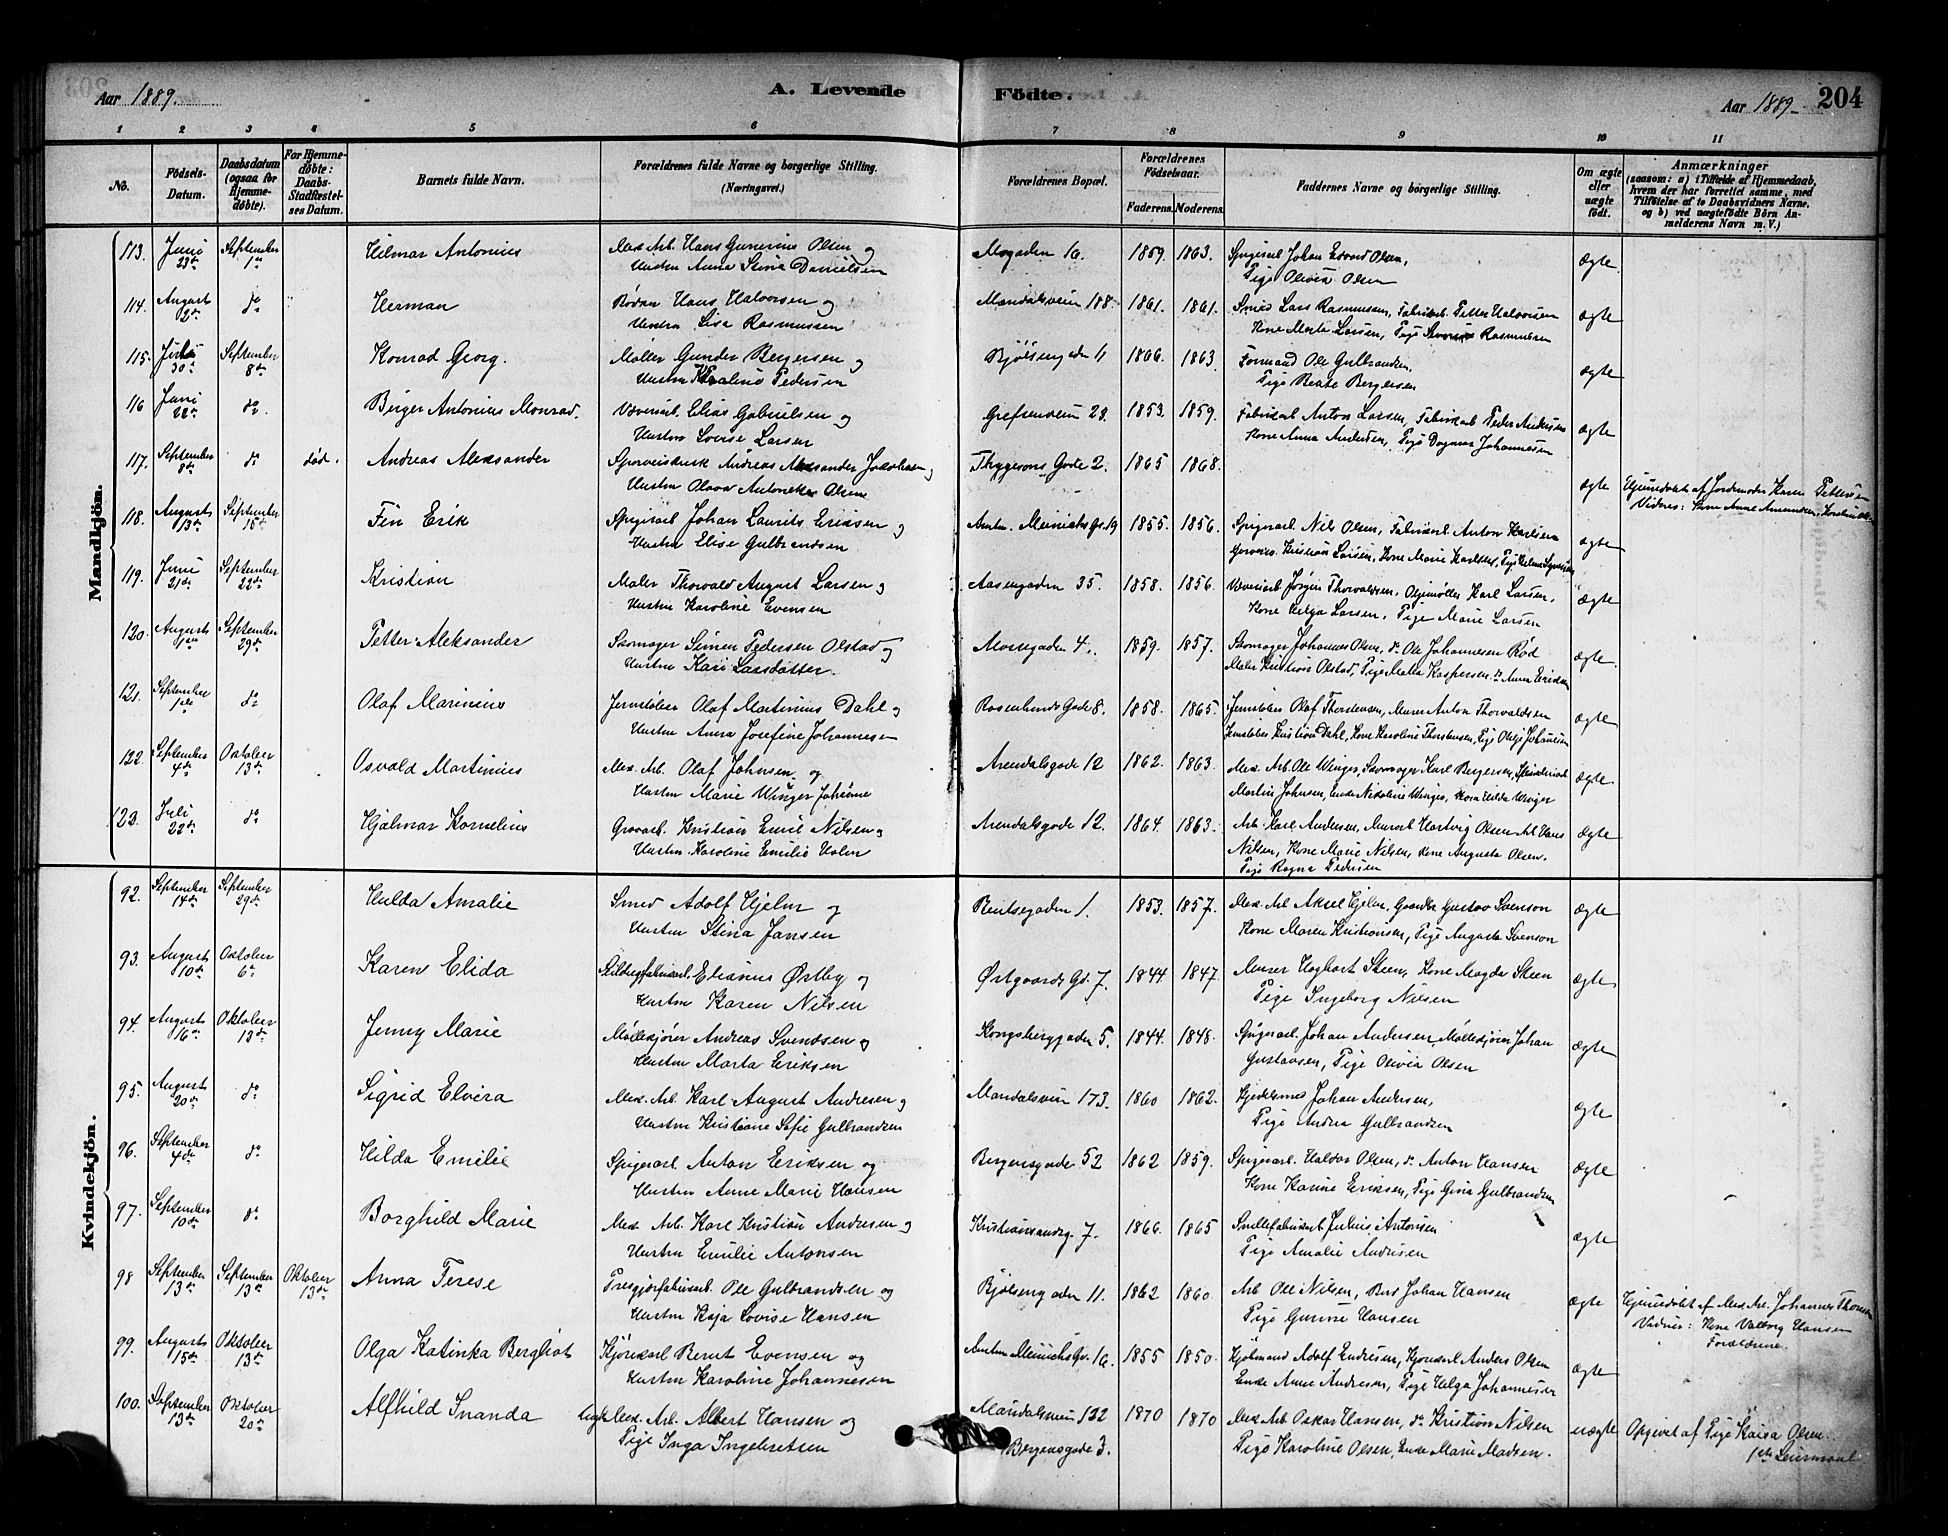 Aar 1889.
A. Levende
Födte.
Aar 1889
204
1 2 3 4 5 6 7 8 9 10 11
No.
Födsels-Datum.
Daabsdatum (ogsaa for Hjemme-döbte).
For Hjemme-döbte: Daabs-Stadfæstel-ses Datum.
Barnets fulde Navn.
Forældrenes fulde Navne og borgerlige Stilling. (Næringsvei.)
Forældrenes Bopæl.
Forældrenes Födselsaar.
Faderens. Moderens.
Faddernes Navne og borgerlige Stilling.
Om ægte eller uægte födt.
Anmærkninger
(saasom: a) i Tilfælde af Hjemmedaab, hvem der har forrettet samme, med Tilföielse af to Daabsvidners Navne, og b) ved uægtefödte Börn Anmelderens Navn m.V.)
Mandkjön.
113. Juni 23de September 1ste Hilmar Antonius Mek. Arb. Hans Gunerius Olsen og Mogaden 16. 1859. 1863. Spigerarb. Johan Edvard Olsen, ægte.
Hustru Anna Stina Danielsen Pige Olivia Olsen
114. August 2de do Herman Bødker Hans Halvorsen og Mandalsveien 188. 1861. 1861. Smed Lars Rasmussen, Fabrikarb. Petter Halvorsen ægte
Hustru Lisa Rasmussen Kone Marte Larsen, Pige Rasmussen
115. 30te September 8de Konrad Georg. Møller Gunder Bergersen og Bjølsengaden 11 1866. 1863. Formand Ole Gulbrandsen, ægte
Hustru Pedersen Pige Beate Bergersen
116 Juni 22de do. Birger Antonius Monrad. Væverarb. Elias Gabrielsen og Grefsenveien 28. 1853. 1859. Fabrikarb. Anton Larsen, Fabrikarb. Peder Andersen ægte
Hustru Lovise Larsen Kone Anna Andersen, Pige Dagmar Johannesen
117. September 8de do død. Andreas Aleksander Sporveiskusk Andreas Aleksander Jakobsen og Thygesons Gade 2. 1865 1868. ægte Hjemmedøbt af Jordmoder Karen Pettersen
Hustru Olava Olsen Vidner: Kone Anne Amundsen,
118. August 13de September 15de Fin Erik Spigerarb. Johan Laurits Eriksen og Amtm. Meinichs Gd. 19 1855. 1856. Spigerarb. Nils Olsen, Fabrikarb. Anton Karlsen ægte
Hustru Elise Gulbrandsen Kristian Larsen, Kone Marie Karlsen, Pige
119. Juni 21de September 22de Kristian Maler Thorvald August Larsen og Aasengaden 35. 1858. 1856. Væverarb. Jørgen Thorvaldsen, Oljemøller Karl Larsen, ægte
Hustru Karoline Evensen Kone Helga Larsen, Pige Marie Larsen
120. August September 29de Petter Aleksander Skomager Simen Pedersen Olstad og Mossegaden 4. 1859. 1857. Skomager Johannes Olsen, do Ole Johannesen Rød ægte.
Hustru Kari Larsdatter. Maler Kristian Olstad, Pige Kaspersen do Anna Eriksen
121. September 1ste do Olaf Marinius Jernstøber Olaf Martinius Dahl og Rosenlunds Gade 8. 1858. 1865. Jernstøber Olaf Thorstensen, Murer Anton Thorvaldsen ægte
Hustru Anna Josefine Johannesen Jernstøber Kristian Dahl, Kone Karoline Thorstensen, Pige Johannesen
122. September 4de Oktober 13de Osvald Martinius Mek. Arb. Olaf Johnsen og Arendalsgade 12 1862. 1863. Mek. Arb. Ole Winger, Skomager Karl Bergersen, ægte
Hustru Marie Winger Martin Johnsen, Enke Nikoline Winger, Kone Hilda Winger
123. Juli 22de do Hjalmar Kornelius Gravarb. Kristian Emil Nilsen og Arendalsgade 12. 1864. 1863. Arb. Karl Andersen, Murarb. Hartvig Olsen Arb Hans ægte
Hustru Karoline Emilie Holm Nilsen, Kone Marie Nilsen, Kone Augusta Olsen.
Pige Ragna Pedersen
Kvindekjön.
92. September 14de September 29de Hilda Amalie Smed Adolf Hjelm og Bentsegaden 1. 1853. 1857. Mek. Arb Aksel Hjelm, Gustav Svenson ægte
Hustru Stina Jansen Kone Maren Kristiansen, Pige Augusta Svenson
93. August 10de Oktober 6te Karen Elida Elianus Østby og Østgaards Gd. 7. 1844 1847. Murer Hagbart Steen, Kone Magda Steen ægte
Hustru Karen Nilsen Pige Ingeborg Nilsen
94. August 16de Oktober 13de Jenny Marie Møllekjører Andreas Svendsen og Kongsberggaden 5. 1844. 1848. Spigerarb. Johan Andersen Møllekjører Johan ægte
Hustru Marta Eriksen Gustavsen, Pige Olivia Olsen
95. August 20de do Sigrid Elvira Mek. Arb. Karl August Andresen og Mandalsveien 173. 1860 1862. Kjedelsmed Johan Andersen, ægte
Hustru Kristiane Sofie Gulbrandsen Pige Andrea Gulbrandsen
96. September 4de do Hilda Emilie Spigerarb. Anton Eriksen og Bergensgade 52 1862 1859. Spigerarb. Haldor Olsen, do Anton Hansen ægte
Hustru Anne Marie Hansen Kone Karine Eriksen, Pige Gina Gulbrandsen
97. September 10de do Borghild Marie Mek. Arb. Karl Kristian Andresen og Kristiansandsg. 7. 1866. 1865 Julius Antonsen ægte
Hustru Emilie Antonsen Pige Amalie Andresen
98 September 13de September 13de Oktober 13de Anna Terese Ole Gulbrandsen og Bjølsengaden 11. 1862 1860. Arb Ole Nilsen, Johan Hansen ægte Hjemmedøbt af Mek. Arb. Johannes
Hustru Kaja Lovise Hansen Pige Gunne Hansen Vidner: Kone Valborg Hansen
Forældrene.
99. August 15de Oktober 13de Olga Katinka Bergliot Kjørekarl Bernt Evensen og Amtm Meinichs Gd. 16. 1855 1850. Adolf Endresen, Kjørekarl Anders Olsen ægte
Hustru Karoline Johannesen Enke Anne Andresen, Pige Helga Johannesen
100. September 13de Oktober 20de Alfhild Inanda Ungk. Mek. Arb. Albert Hansen og Mandalsveien 132 1870 1870 Mek Arb Oskar Hansen, do Kristian Nilsen uægte Opgivet af Pige Kaisa Olsen.
Pige Inga Ingebretsen Bergensgade 3. Pige Karoline Olsen, Enke Marie Madsen. 1ste Leiermaal